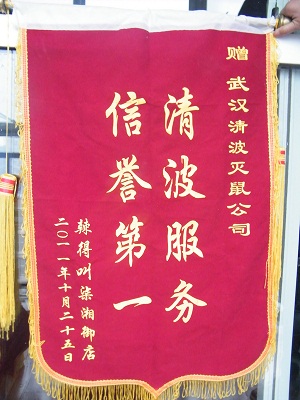 赠 武汉清波灭鼠公司
清波服务
信誉第一
辣得叫柒湘御店
二〇一一年十月二十五日